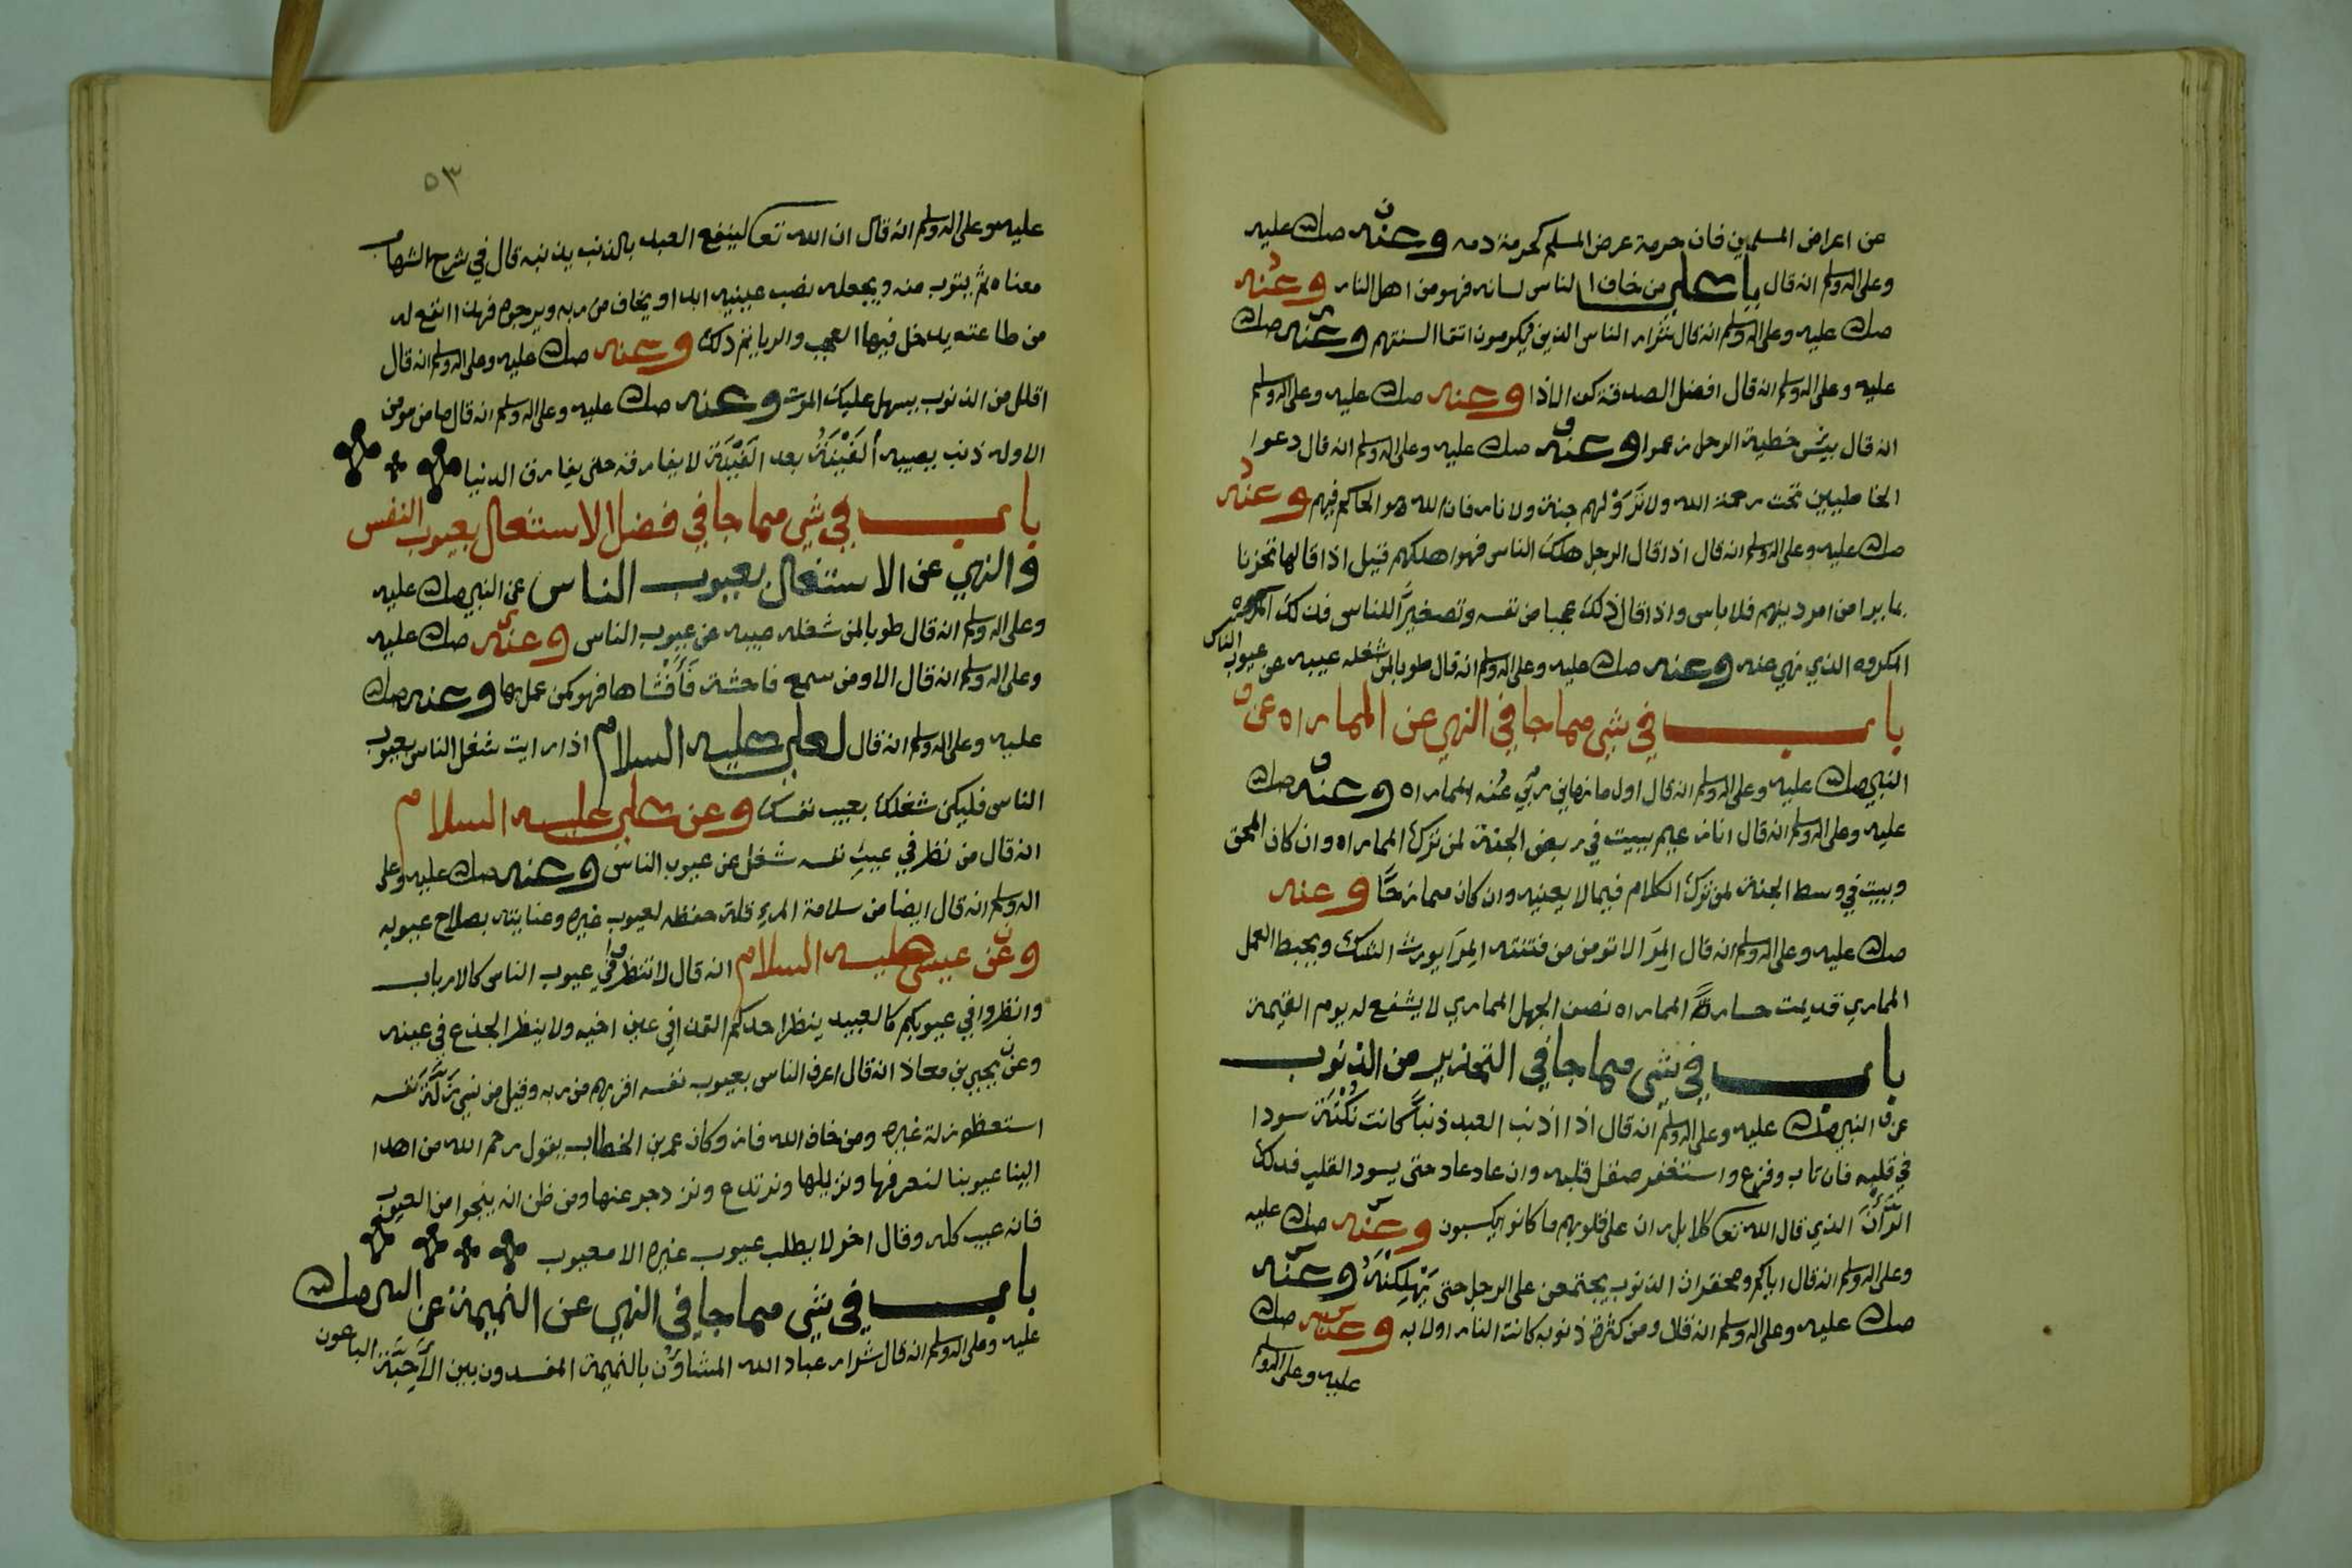 عن اعراض المسلمين فان حرمة عرض المسلم كحرمة دمه وعنه صلى الله عليه
وعلى اله وسلم انه قال يا علي من خاف الناس لسانه فهو من اهل النار وعنه
صلى الله عليه وعلى اله وسلم انه قال شرار الناس الذين يكرمون اتقا السنتهم وعنه صلى الله
عليه وعلى اله وسلم انه قال افضل الصدقة كف الاذا وعنه صلى الله عليه وعلى اله وسلم
انه قال بيس خطية الرجل زعموا وعنه صلى الله عليه وعلى اله وسلم انه قال دعوا
الخاطيين تحت رحمة الله ولا لهم جنة ولا نار فان الله هو الحاكم فيهم وعنه
صلى الله عليه وعلى اله وسلم انه قال اذا قال الرجل هلك الناس فهو اهلكهم قيل اذا قالها تحزنا
بما يرا من امر دينهم فلا باس واذا قال ذلك عجبا من نفسه وتصغيرا للناس فذلك المكروه
المكروه الذي نهي عنه وعنه صلى الله عليه وعلى اله وسلم انه قال طوبا لمن شغله عيبه عن عيوب الناس
باب في شي مما جا في النهي عن المماراه عن
النبي صلى الله عليه وعلى اله وسلم انه قال اول ما نهاني ربي عنه المماراه وعنه صلى الله
عليه وعلى اله وسلم انه قال انا زعيم ببيت في ربض الجنة لمن ترك المماراه وان كان المحق
وبيت في وسط الجنة لمن ترك الكلام فيما لا يعنيه وان كان ممازحا وعنه
صلى الله عليه وعلى اله وسلم انه قال المرا لا تومن من فتنته المرا يورث الشك ويحبط العمل
المماري قد يمت المماراه نصف الجهل المماري لا يشفع له يوم القيمة
باب في شي مما جا في التحذير من الذنوب
عن النبي صلى الله عليه وعلى اله وسلم انه قال اذا اذنب العبد ذنبا كانت نكتة سودا
في قلبه فان تاب وفزع واستغفر صقل قلبه وان عاد عاد حتى يسود القلب فذلك
الران الذي قال الله تعا كلا بل ران على قلوبهم ما كانوا يكسبون وعنه صلى الله عليه
وعلى اله وسلم انه قال اياكم ومحقرات الذنوب يجتمعن على الرجل حتى يهلكنه وعنه
صلى الله عليه وعلى اله وسلم انه قال ومن كثرة ذنوبه كانت النار اولا به وعنه صلى الله
عليه وعلى اله وسلم
٥٣
عليه وعلى اله وسلم انه قال ان الله تعا لينفع العبد بالذنب يذنبه قال في شرح الشهاب
معناه ثم يتوب منه ويجعله نصب عينيه ابدا ويخاف من ربه ويرجوه فهذا انفع له
من طاعته يدخل فيها العجب والريا ذلك وعنه صلى الله عليه وعلى اله وسلم انه قال
اقلل من الذنوب يسهل عليك الموت وعنه صلى الله عليه وعلى اله وسلم انه قال ما من مومن
الا وله ذنب يصيبه الفينة بعد الفينة لا يفارقه حتى يفارق الدنيا
باب في شي مما جا في فضل الاشتغال بعيوب النفس
والنهي عن الاشتغال بعيوب الناس عن النبي صلى الله عليه
وعلى اله وسلم انه قال طوبا لمن شغله عيبه عن عيوب الناس وعنه صلى الله عليه
وعلى اله وسلم انه قال الا ومن سمع فاحشة فافشاها فهو كمن عمل بها وعنه صلى الله
عليه وعلى اله وسلم انه قال لعلي عليه السلام اذا رايت شغل الناس بعيوب
الناس فليكن شغلك بعيب نفسك وعن علي عليه السلام
انه قال من نظر في عيب نفسه شغل عن عيوب الناس وعنه صلى الله عليه وعلى
اله وسلم انه قال ايضا من سلامة المرء قلة حفظه لعيوب غيره وعنايته بصلاح عيوبه
وعن عيسى عليه السلام انه قال لا تنظروا في عيوب الناس كالارباب
وانظروا في عيوبكم كالعبيد ينظر احدكم القذا في عين اخيه ولا ينظر الجذع في عينه
وعن يحيي بن معاذ انه قال اعرف الناس بعيوب نفسه من ربه وقيل من نسي زلة نفسه
استعظم زلة غيره ومن خاف الله فاز وكان عمر بن الخطاب يقول رحم الله من اهدا
الينا عيوبنا لنعرفها ونزيلها ونرتدع ونزدجر عنها ومن ظن انه ينجوا من العيوب
فانه عيب كله وقال اخر لا يطلب عيوب غيره الا معيوب
باب في شي مما جا في النهي عن النميمة عن النبي صلى الله
عليه وعلى اله وسلم انه قال شرار عباد الله المشاون بالنميمة المفسدون بين الاحبة الباعون